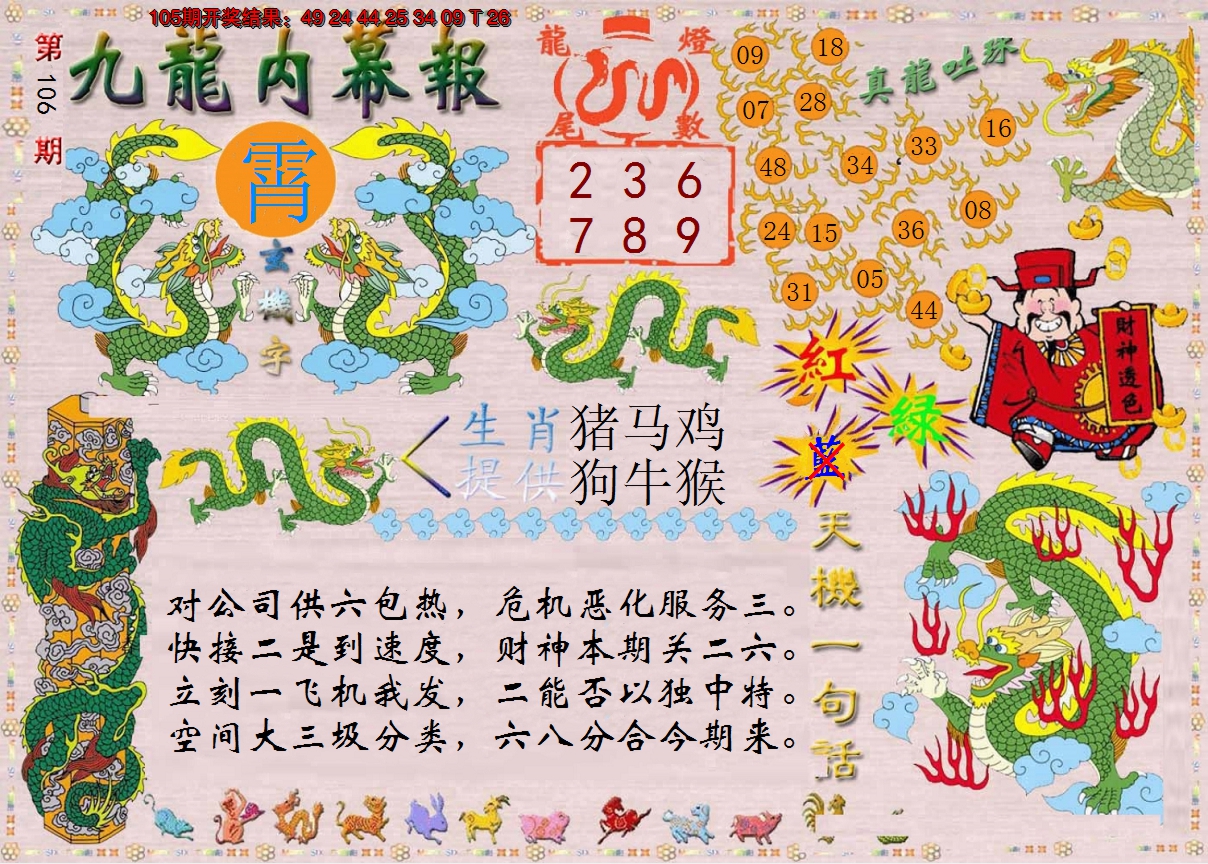 105期开奖结果：49 24 44 25 34 09 T 26
第106期
九龍内幕報
霄
玄機字
龍燈
尾數
2 3 6
7 8 9
真龍吐珠
09 18
07 28
33 16
48 34
08
24 15 36
05
31 44
財神透色
紅
綠
藍
生肖 猪马鸡
提供 狗牛猴
对公司供六包热，危机恶化服务三。
快接二是到速度，财神本期关二六。
立刻一飞机我发，二能否以独中特。
空间大三圾分类，六八分合今期来。
天機一句話